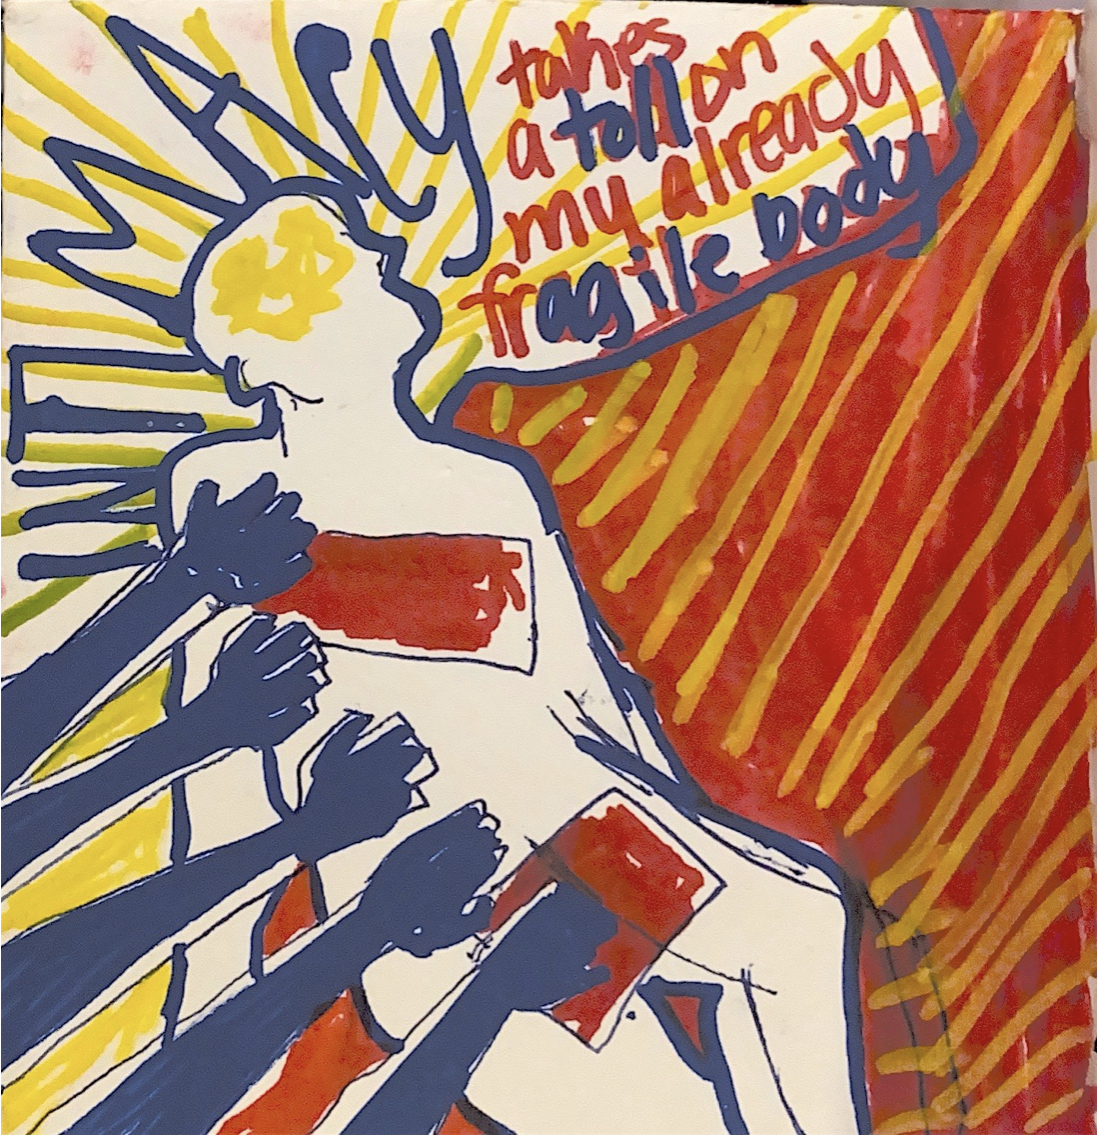 takes
a toll on
my already
fragile body